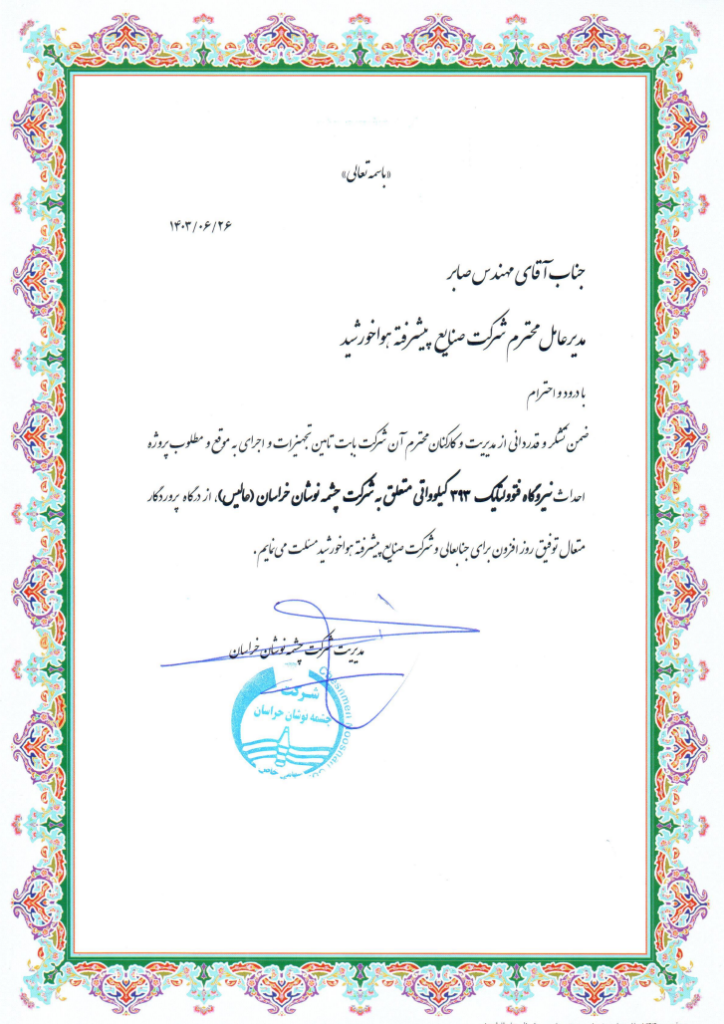 «باسمه تعالی»
۱۴۰۳/۰۶/۲۶
جناب آقای مهندس صابر
مدیرعامل محترم شرکت صنایع پیشرفته هواخورشید
با درود و احترام
ضمن تشکر و قدردانی از مدیریت و کارکنان محترم آن شرکت بابت تامین تجهیزات و اجرای به موقع و مطلوب پروژه
احداث نیروگاه فتوولتائیک ۳۹۳ کیلوواتی متعلق به شرکت چشمه نوشان خراسان (عالیس)، از درگاه پروردگار
متعال توفیق روز افزون برای جنابعالی و شرکت صنایع پیشرفته هواخورشید مسئلت می نمایم.
مدیریت شرکت چشمه نوشان خراسان
شرکت
چشمه نوشان خراسان
سهامی خاص